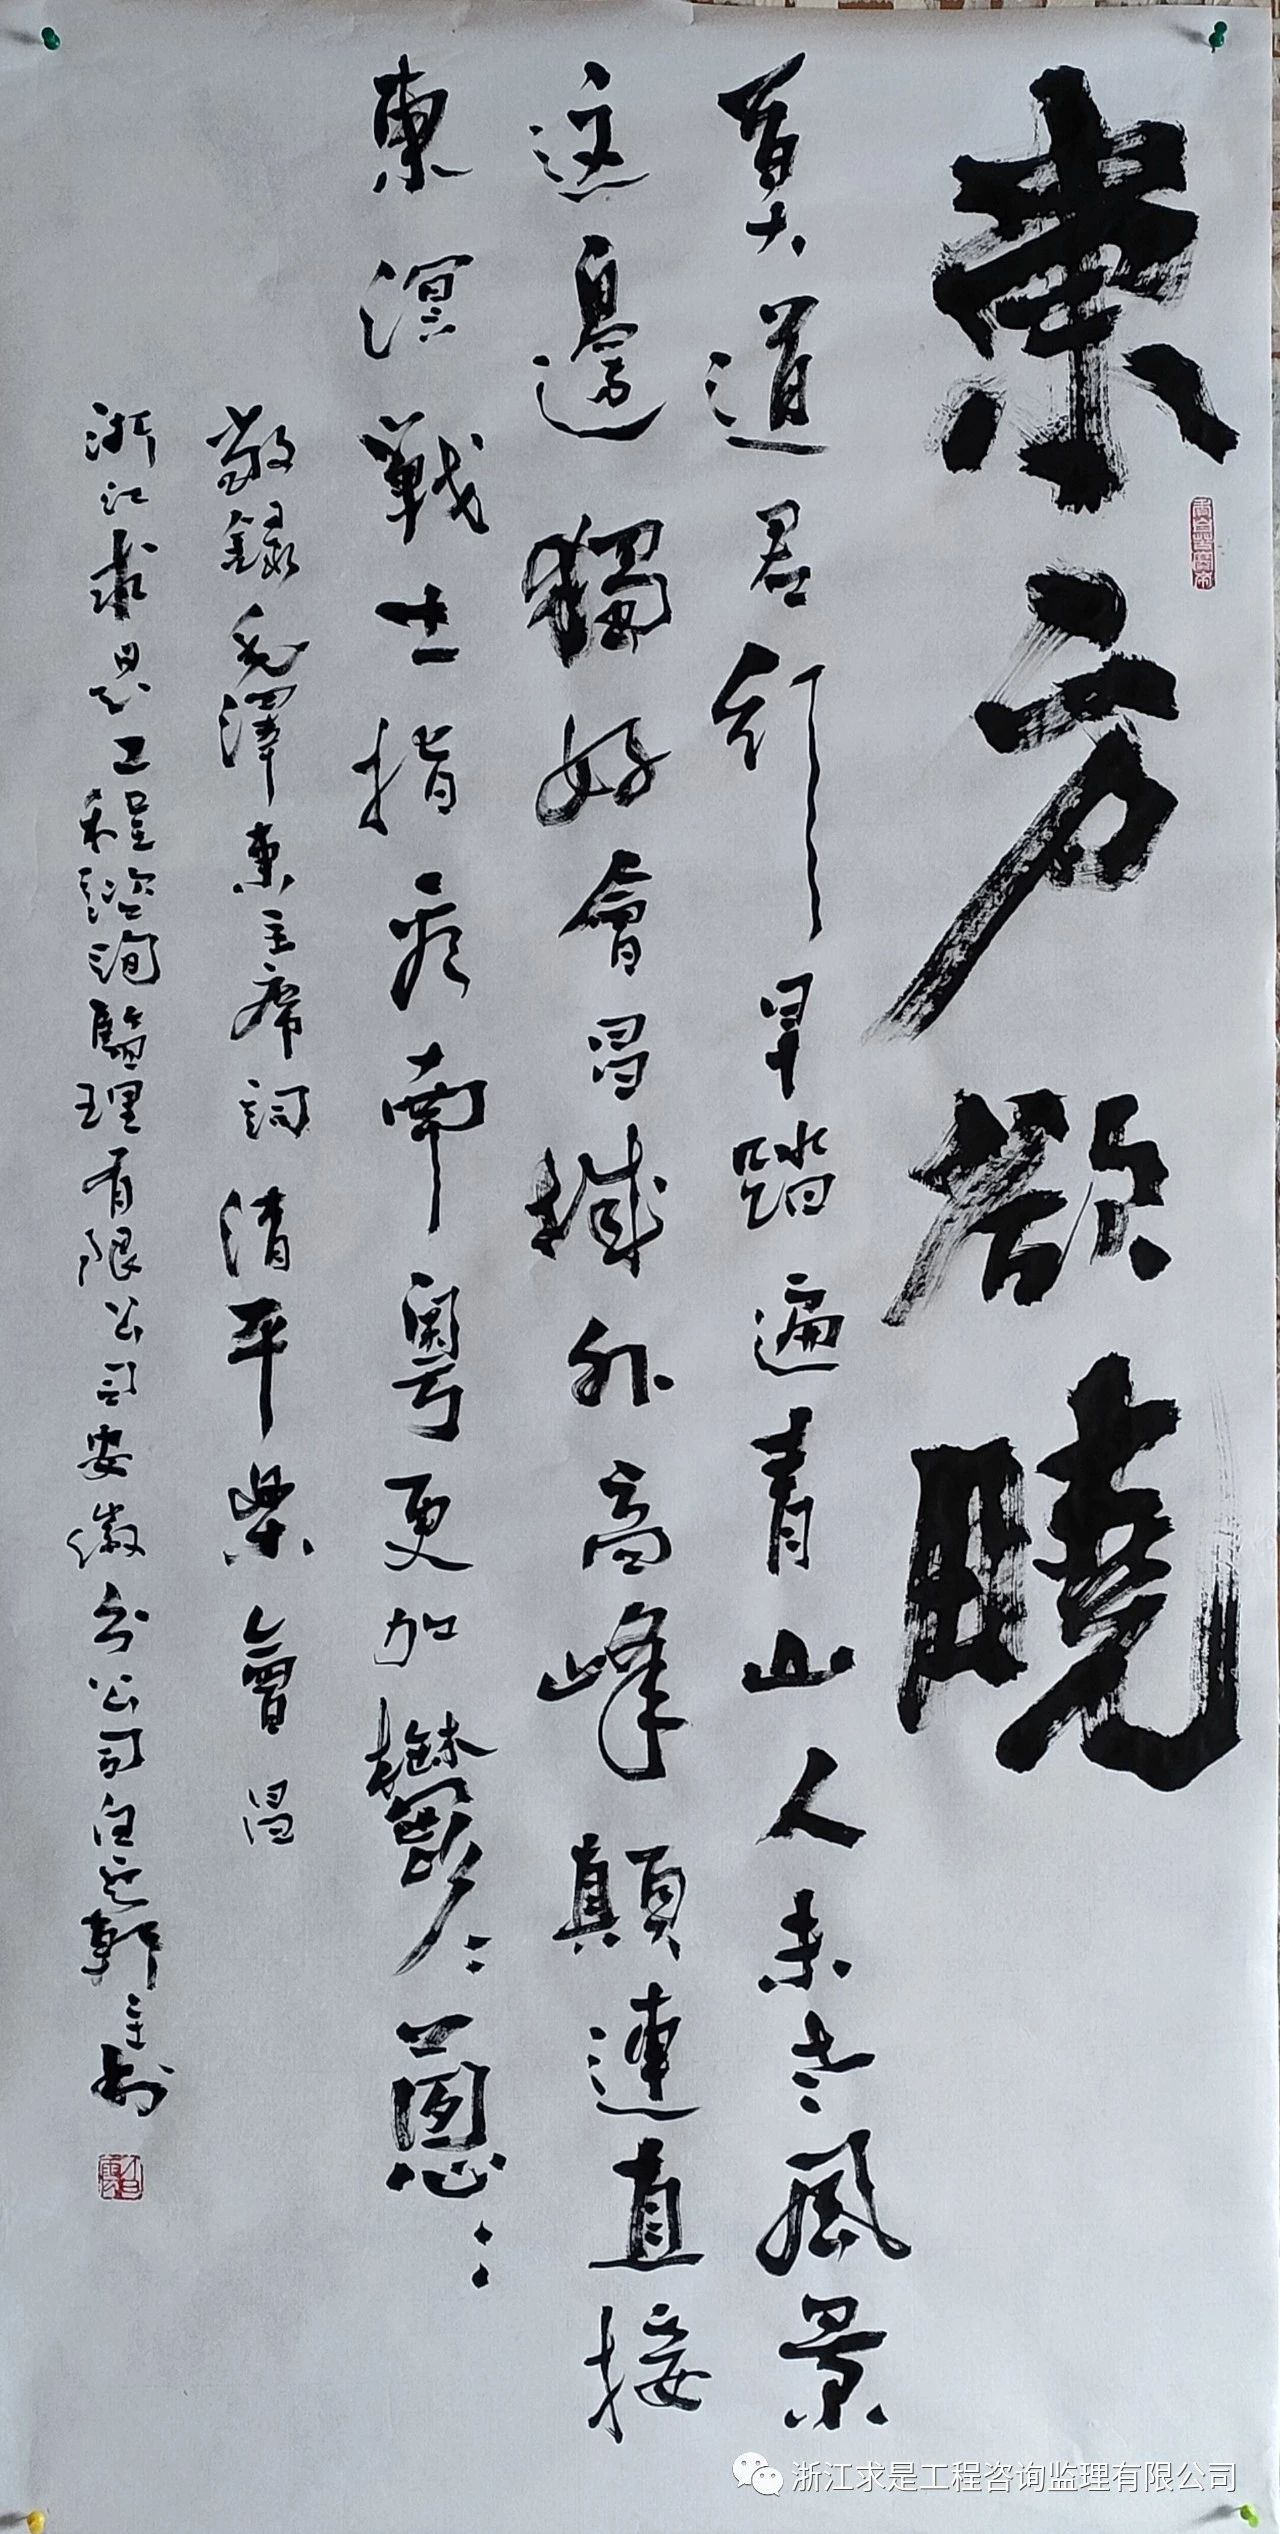 東方欲曉
莫道君行早踏遍青山人未老風景
這邊獨好會昌城外高峰顛連直接
東溟戰士指看南粵更加鬱〻蔥〻
敬錄毛澤東主席詞清平樂會昌
浙江求是工程諮詢監理有限公司安徽分公司白雲
浙江求是工程咨询监理有限公司